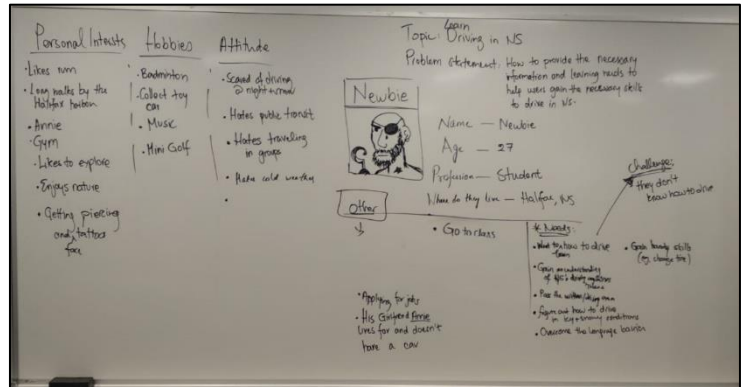 Personal Interests
• Likes rum
• Long walks by the
Halifax harbour
• Annie
• Gym
• Likes to explore
• Enjoys nature
• Getting piercing
and tattoo
face
Hobbies
• Badminton
• Collect toy
car
• Music
• Mini Golf
Attitude
• Scared of driving
@ night
• Hates public transit
• Hates traveling
in groups
• Hates cold weather
Topic: Learn Driving in NS
Problem statement: How to provide the necessary
information and learning needs to
help users gain the necessary skills
to drive in NS.
Newbie
Name — Newbie
Age — 27
Profession — Student
Where do they live — Halifax, NS
Challenge:
they don't
know how to drive
Other
• Go to class
• Applying for jobs
• His Girlfriend Annie
lives far and doesn't
have a car
* Needs:
• how to drive
learn
• Gain an understanding
of NS's
• Pass the written/driving exam
• Figure out how to drive
in icy + snowy conditions
• Overcome the language barrier
• Gain skills
(eg. change tire)